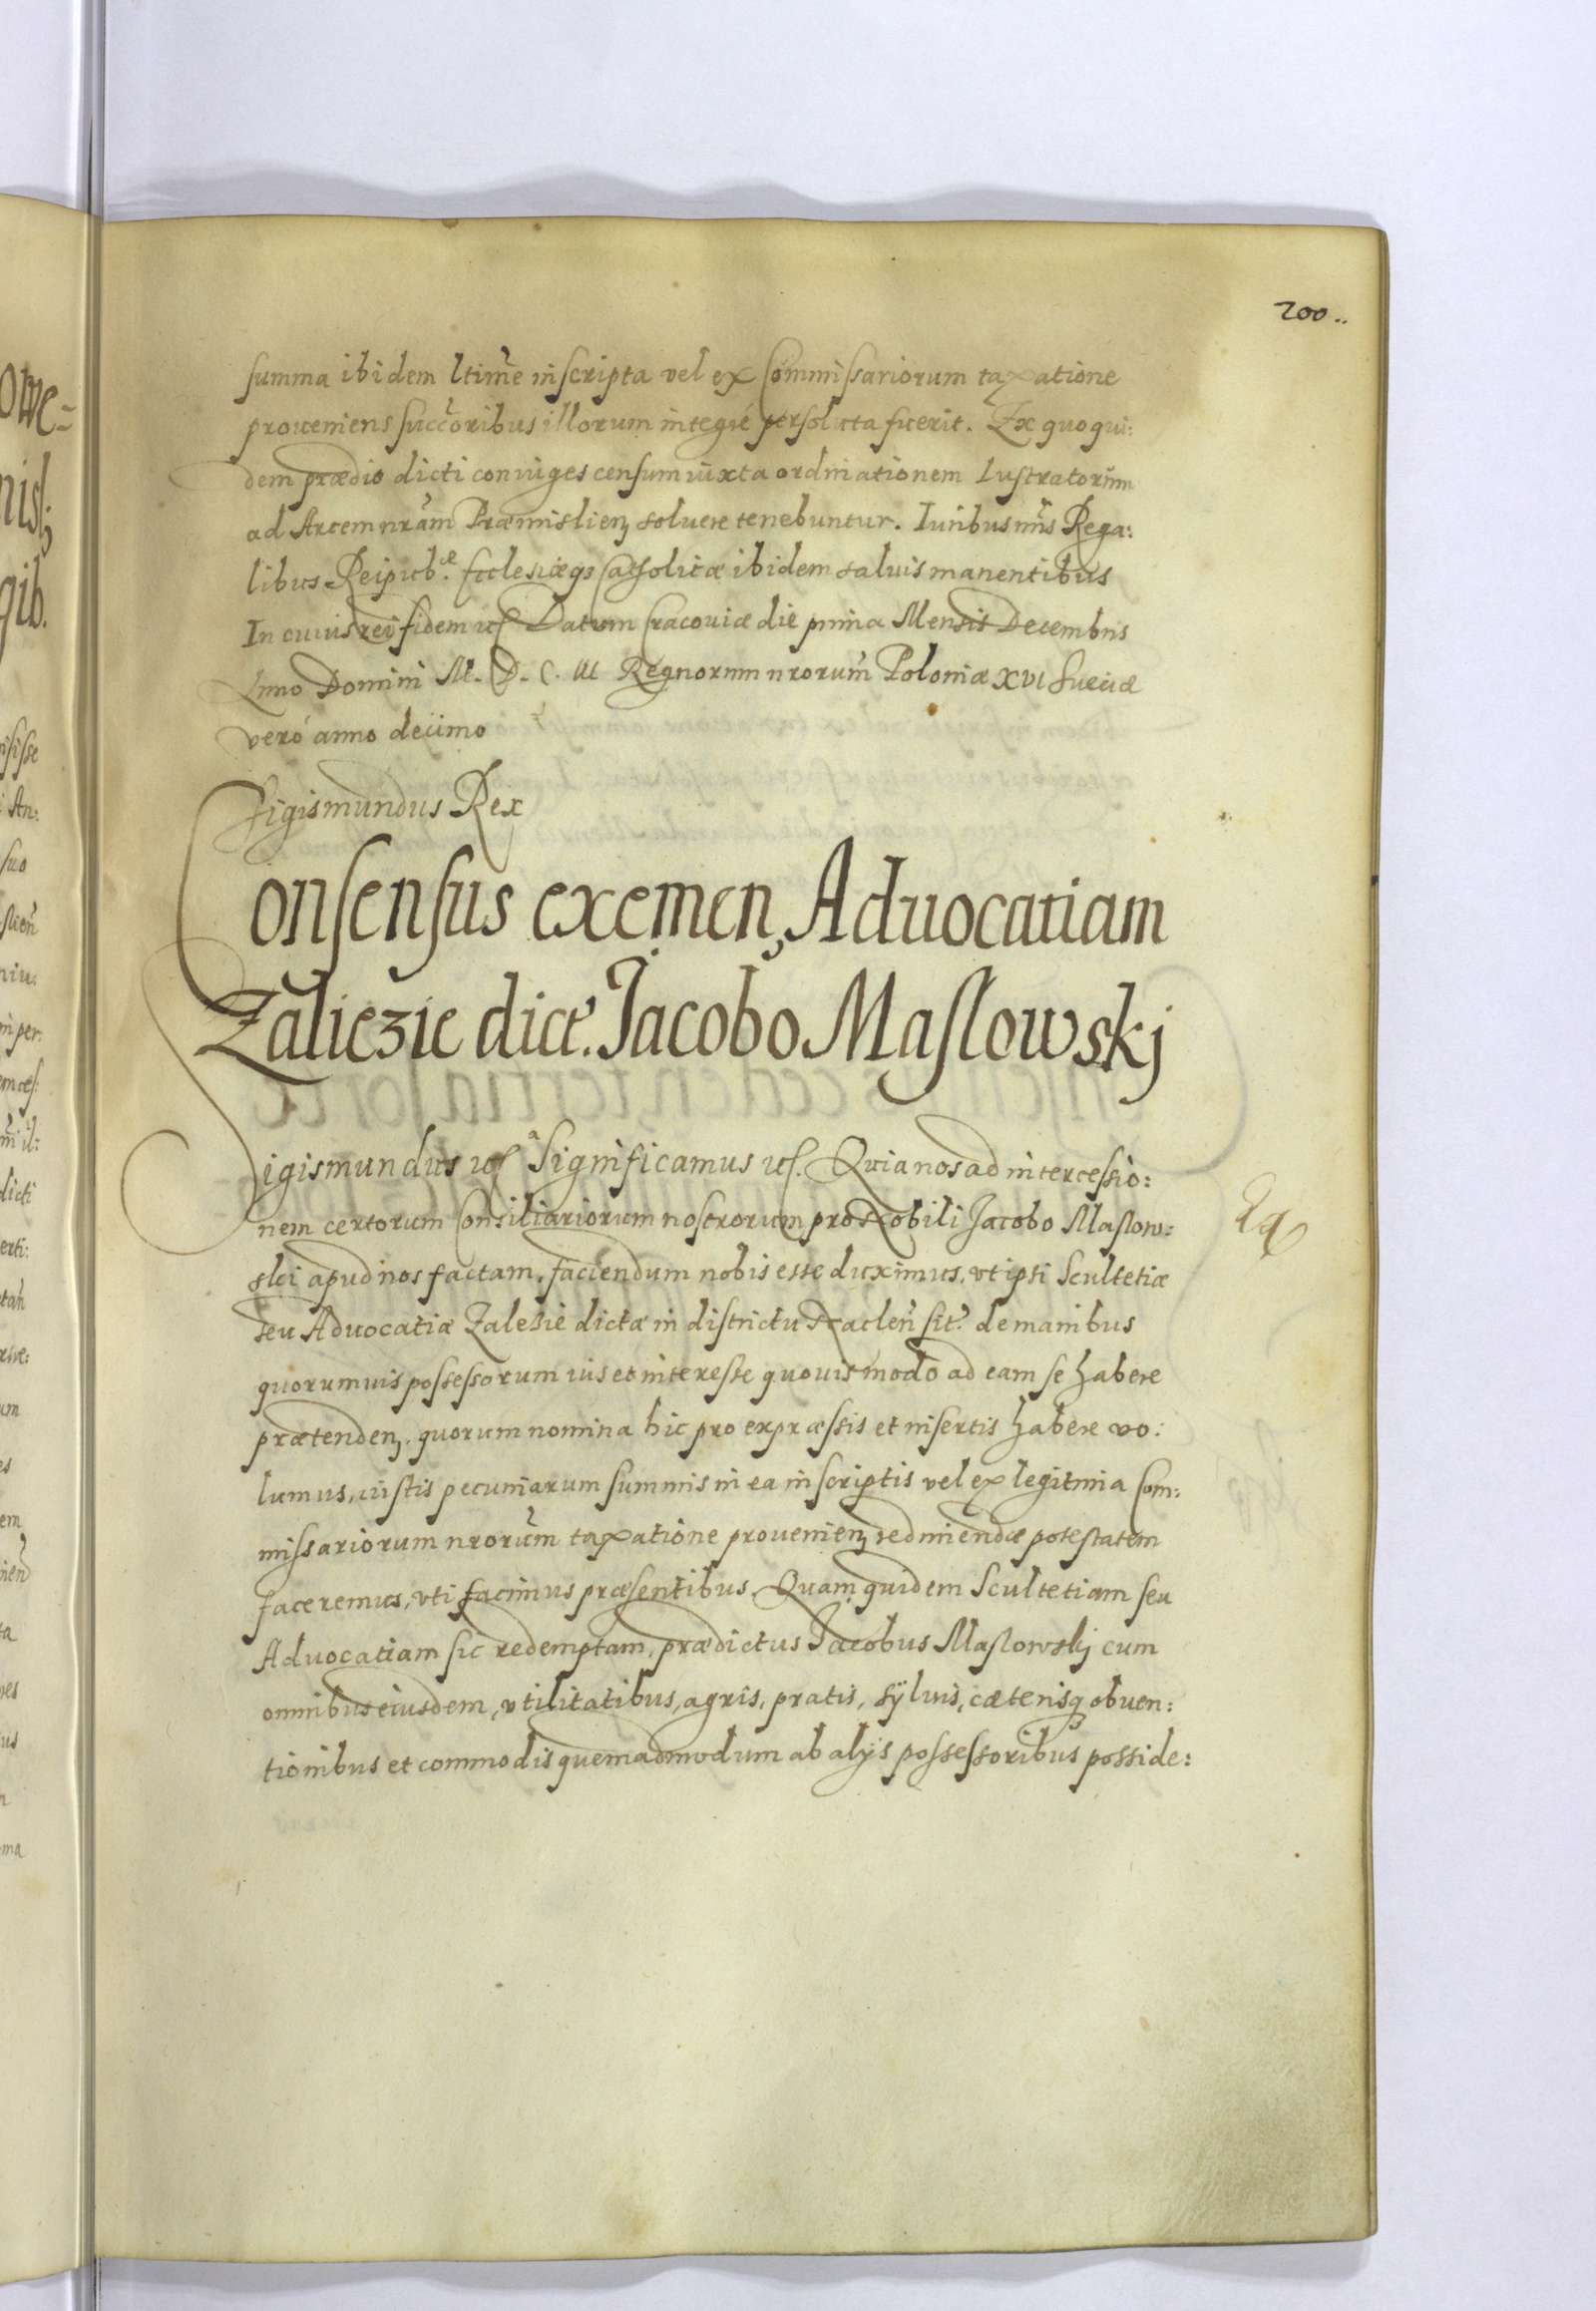 200..
summa ibidem ltimẽ inscripta vel ex Commissariorum taxatione
proueniens succ̃oribus illorum integré persoluta fuerit. Ex quo qui:
dem prædio dicti coniuges censum iuxta ordinationem Lustratorum
ad Arcem nrãm Præmislien̄ soluere tenebuntur. Iuribus nr̃is Rega:
libus Reipub.æ Ecclesiæq3 Catholicæ ibidem saluis manentibus
In cuius rei fidem etc Datum Cracouiæ die prima Mensis Decembris
Anno Domini M. D. C. III Regnorum nrorum̃ Poloniæ XVI Sueciæ
veró anno decimo
Sigismundus Rex
Consensus exemen, Aduocatiam
Zaliezie dict. Jacobo Maslowskj
Sigismundus etc Significamus etc. Quia nos ad intercessio:
nem certorum Consiliariorum nostrorum pro Nobili Jacobo Maslow:
skj apud nos factam, faciendum nobis esse duximus, vt ipsi Scultetiæ
seu Aduocatiæ Zalezie dictæ in districtu Naclen̄ sit. de manibus
quorumuis possessorum ius et interesse quouis modo ad eam se habere
prætenden̄, quorum nomina hic pro expræssis et insertis habere vo:
lumus, iustis pecuniarum summis in ea inscriptis vel ex legitima Com:
missariorum nrorum̃ taxatione prouenien̄ redimendæ potestatem
faceremus, vti facimus præsentibus. Quam quidem Scultetiam seu
Aduocatiam sic redemptam, prædictus Jacobus Maslowskj cum
omnibus eiusdem, vtilitatibus, agris, pratis, sÿluis, cæterisq3 obuen:
tionibus et commodis quemadmodum ab alÿs possessoribus posside: